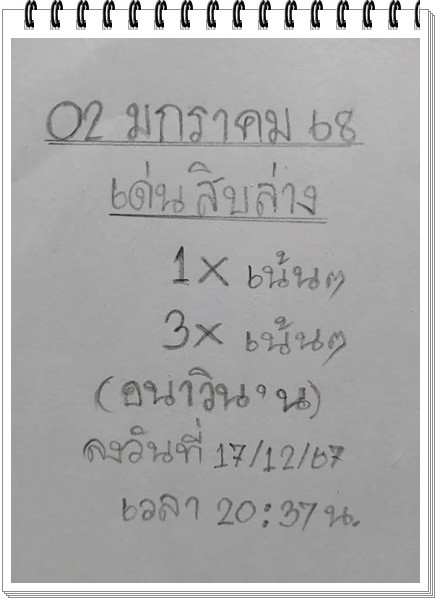 02 มกราคม 68
เด่นสิบล่าง
1x เน้นๆ
3x เน้นๆ
(อนาวิน'น)
ลงวันที่ 17/12/67
เวลา 20:37 น.